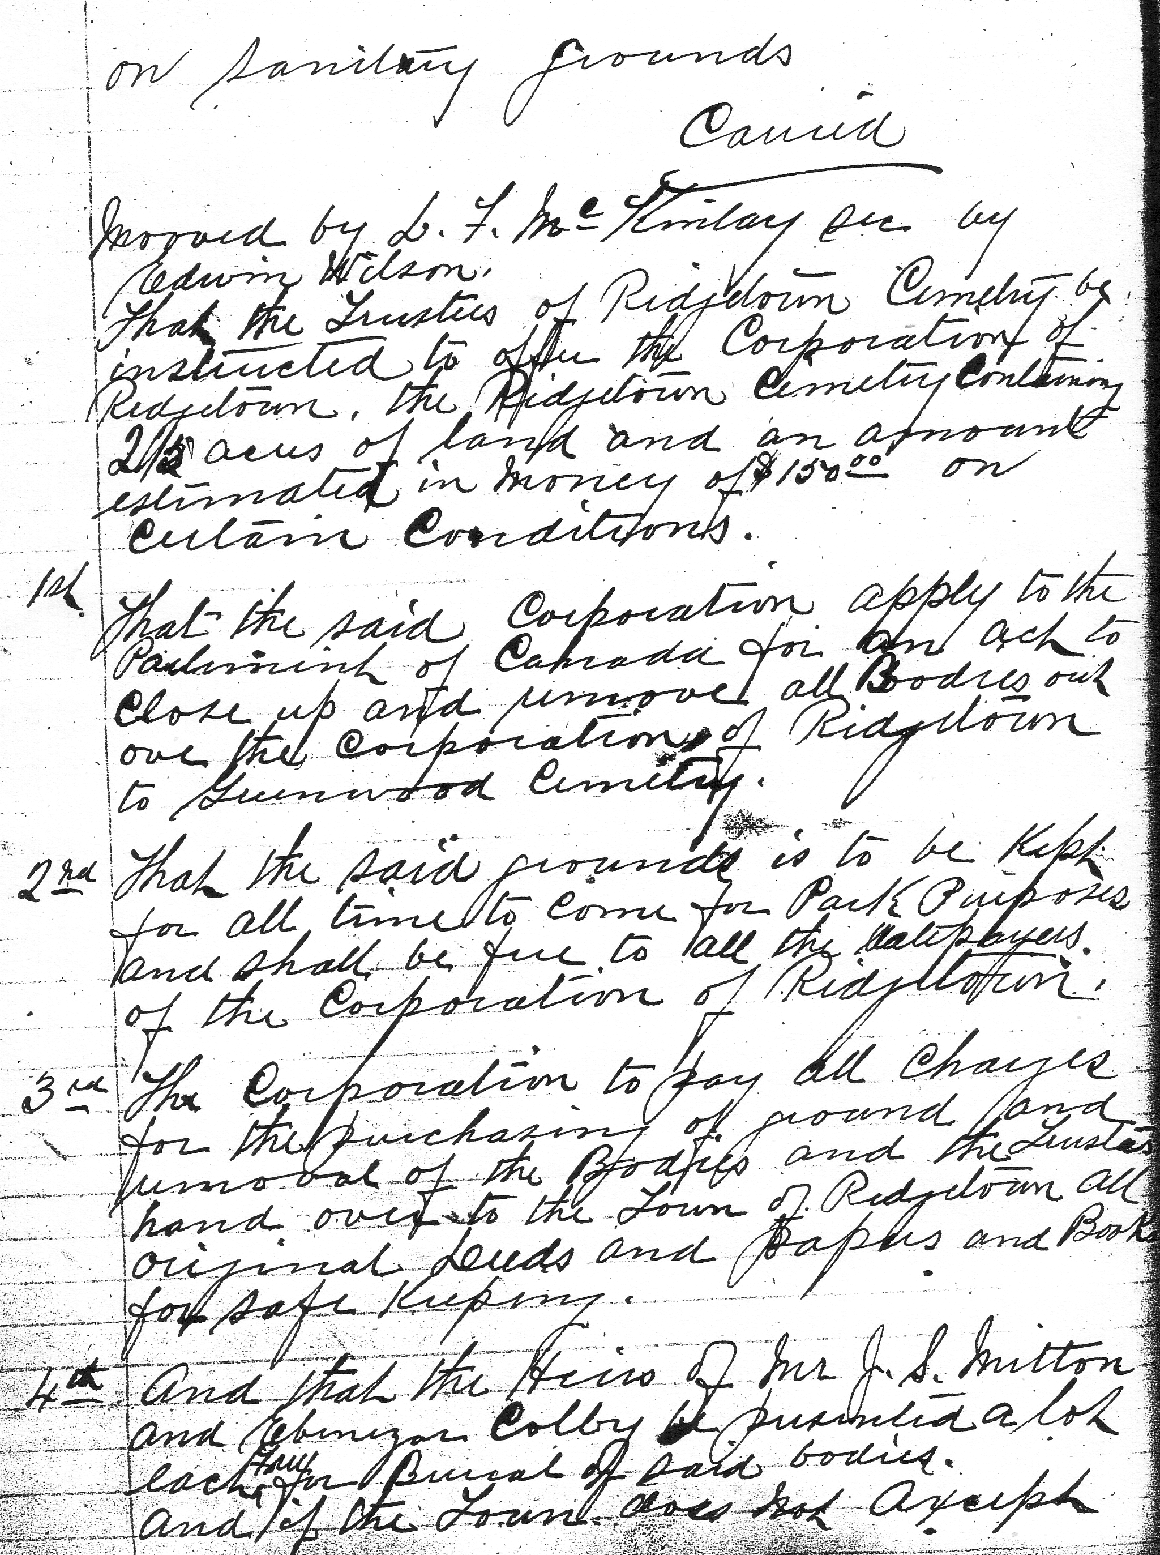 on sanitary grounds
Carried
Mooved by L. F. McKinlay sec by
Edwin Wilson.
That the Trustees of Ridgetown Cemetry be
instructed to offer the Corporation of
Ridgetown. the Ridgetown Cemetry Containing
acres of land and an amount
estimated in Money of $150.00 on
Certain Conditions.
1st That the said Corporation apply to the
Parliment of Canada for an act to
Close up and remove all Boodies out
ove the Corporation of Ridgetown
to Greenwood Cemetry.
2nd That the said grounds is to be Kept
for all time to Come for Park Purposes
and shall be free to all the Ratepayers.
of the Corporation of Ridgetown.
3rd The Corporation to pay all Charges
for the purchasing of ground and
removal of the Bodies and the Trustees
hand over to the Town of Ridgetown all
original Deeds and papers and Books
for safe Keeping.
4th And that the Heirs of Mr J. S. Mitton
and Ebenezar Colby be presented a lot
each for Burial of said bodies.
And if the Town does not Axcept